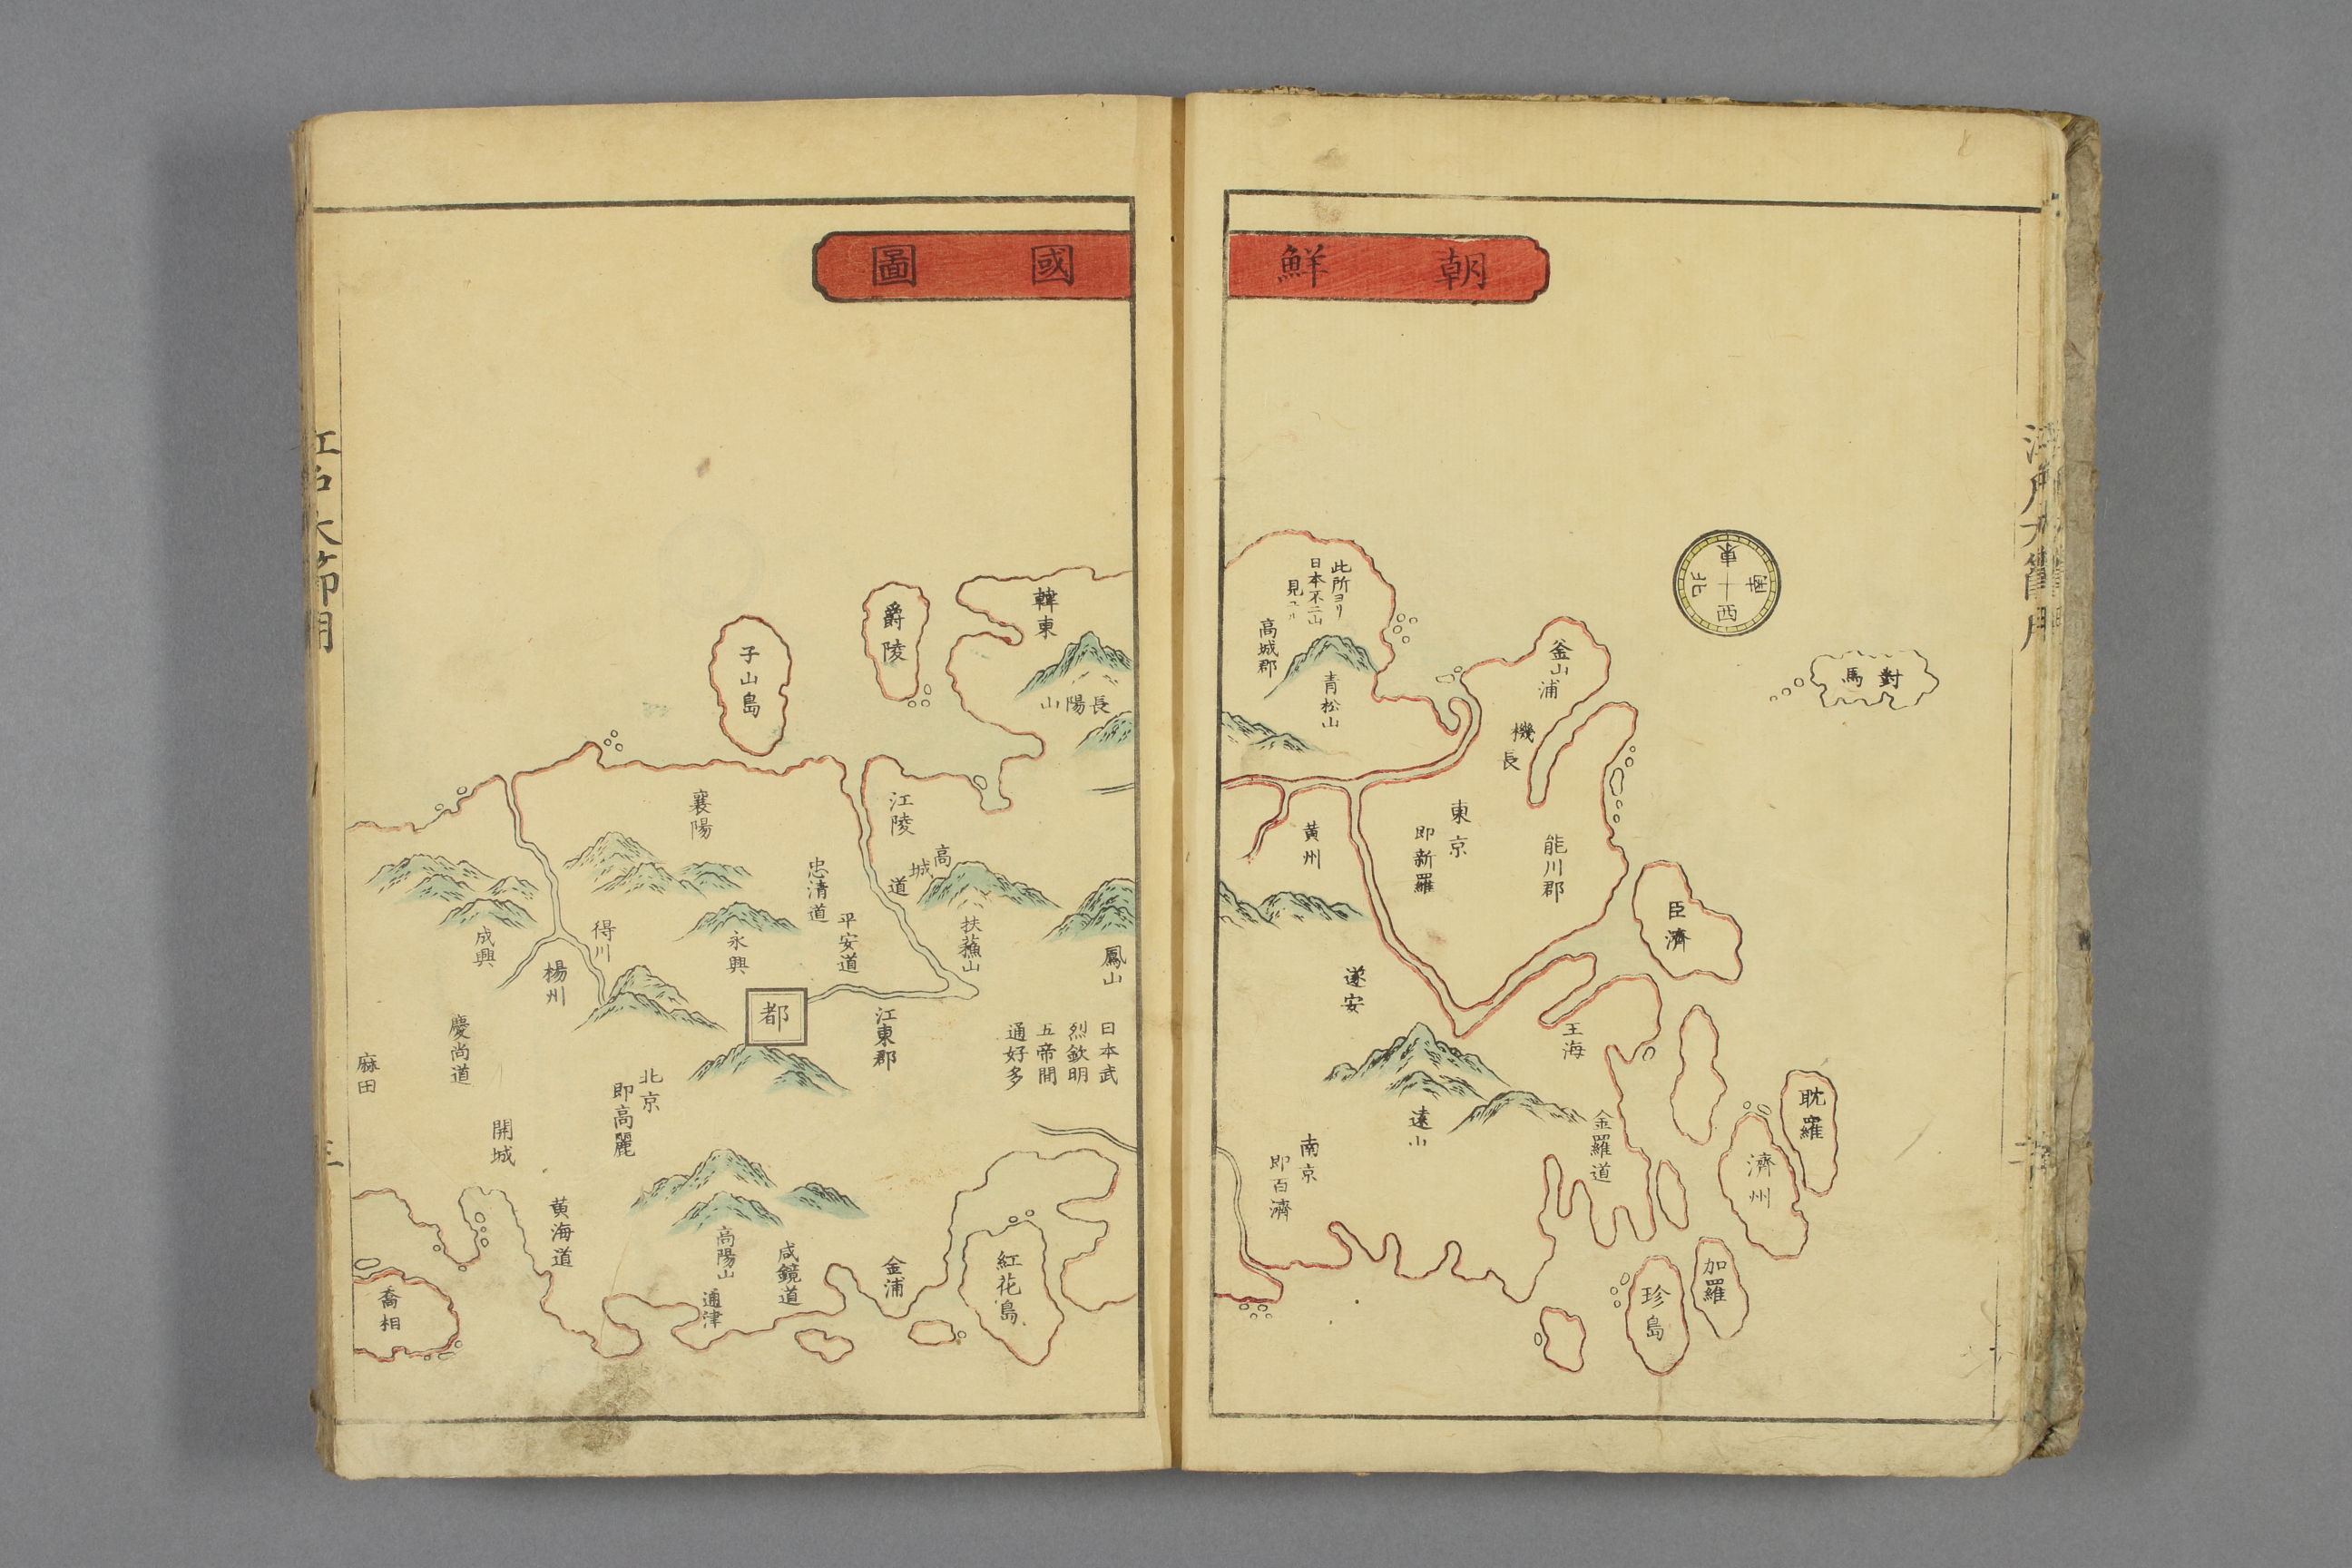 朝鮮
國圖
對馬
東
南
西
北
釜山浦
機長
此所ヨリ
日本不二山
見ユル
高城郡
青松山
黄州
東京
即新羅
能川郡
臣濟
遂安
王海
遠山
金羅道
南京
即百濟
耽羅
濟州
加羅
珍島
韓東
長陽山
爵陵
子山島
江陵
道
高城
扶蕪山
鳳山
襄陽
忠清道
平安道
永興
都
江東郡
日本武
烈欽明
五帝間
通好多
得川
楊州
成興
慶尚道
麻田
北京
即高麗
開城
黄海道
高陽山
通津
咸鏡道
金浦
紅花島
喬相
江戸大節用